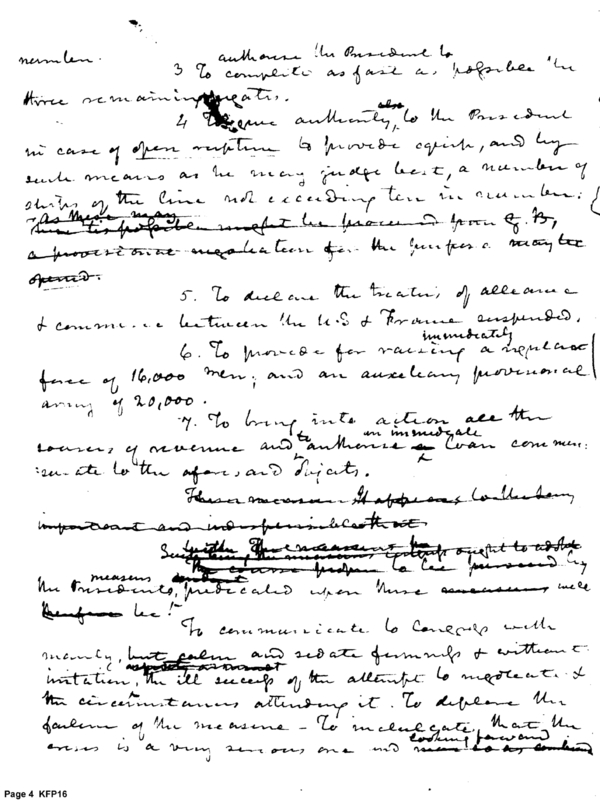 number.
authorise the President to
3 To complete as fast as possible the
three remaining frigates.
4 To give authority, also, to the President
in case of open rupture to provide equip, and by
such means as he may judge best, a number of
ships of the line not exceeding ten in number.
as these may
be procured from G. B,
a provisional negotiation for the purpose may be
opened.
5. To declare the treaties of alliance
& commerce between the U.S & France suspended.
immediately
6. To provide for raising a regular
force of 16,000 men; and an auxiliary provisional
army of 20,000.
7. To bring into action all the
an immediate
sources of revenue and to authorise a loan commen:
:surate to the aforesaid objects.
These measures It appears to
important and indispensible that
Such being the measures Congress ought to adopt
The course proper to be pursued by
measures conduct
the Presidents, predicated upon those measures will
therefore be!
To communicate to Congress with
manly, but calm and sedate firmness & without
irritation, the ill success of the attempt to negotiate &
the circumstances attending it. To deplore the
failure of the measure – To inculcate that the
looking forward
crisis is a very serious one and
Page 4 KFP16